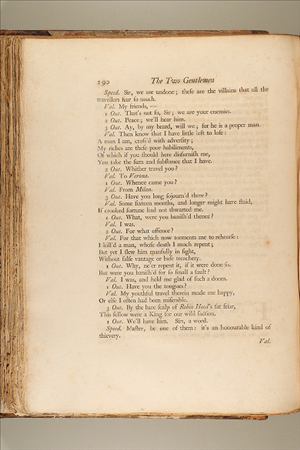 190 The Two Gentlemen
Speed. Sir, we are undone; these are the villains that all the
travellers fear so much.
Val. My friends, —
1 Out. That's not so, Sir; we are your enemies.
2 Out. Peace; we'll hear him.
3 Out. Ay, by my beard, will we; for he is a proper man.
Val. Then know that I have little left to lose:
A man I am, cross'd with adversity;
My riches are these poor habiliments,
Of which if you should here disfurnish me,
You take the sum and substance that I have.
2 Out. Whither travel you?
Val. To Verona.
1 Out. Whence came you?
Val. From Milan.
3 Out. Have you long sojourn'd there?
Val. Some sixteen months, and longer might have staid,
If crooked fortune had not thwarted me.
1 Out. What, were you banish'd thence?
Val. I was.
2 Out. For what offence?
Val. For that which now torments me to rehearse:
I kill'd a man, whose death I much repent;
But yet I slew him manfully in fight,
Without false vantage or base treachery.
1 Out. Why, ne'er repent it, if it were done so.
But were you banish'd for so small a fault?
Val. I was, and held me glad of such a doom.
1 Out. Have you the tongues?
Val. My youthful travel therein made me happy,
Or else I often had been miserable.
3 Out. By the bare scalp of Robin Hood's fat friar,
This fellow were a King for our wild faction.
1 Out. We'll have him. Sirs, a word.
Speed. Master, be one of them: it's an honourable kind of
thievery.
Val.